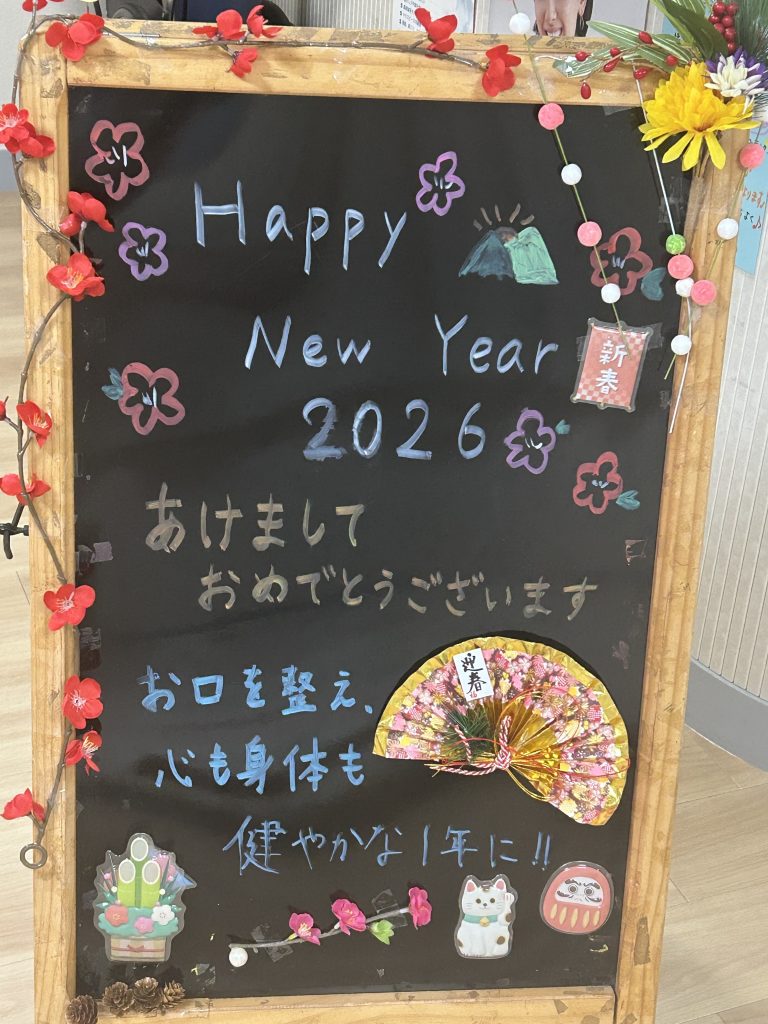 Happy
New Year
新春
2026
あけまして
おめでとうございます
迎春
お口を整え、
心も身体も
健やかな1年に!!